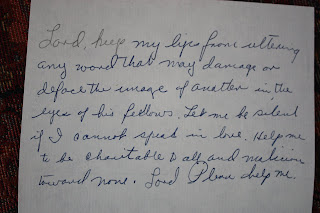 Lord, keep my lips from uttering
any word that may damage or
deface the image of another in the
eyes of his fellows. Let me be silent
if I cannot speak in love. Help me
to be charitable to all and
toward none. Lord Please help me.